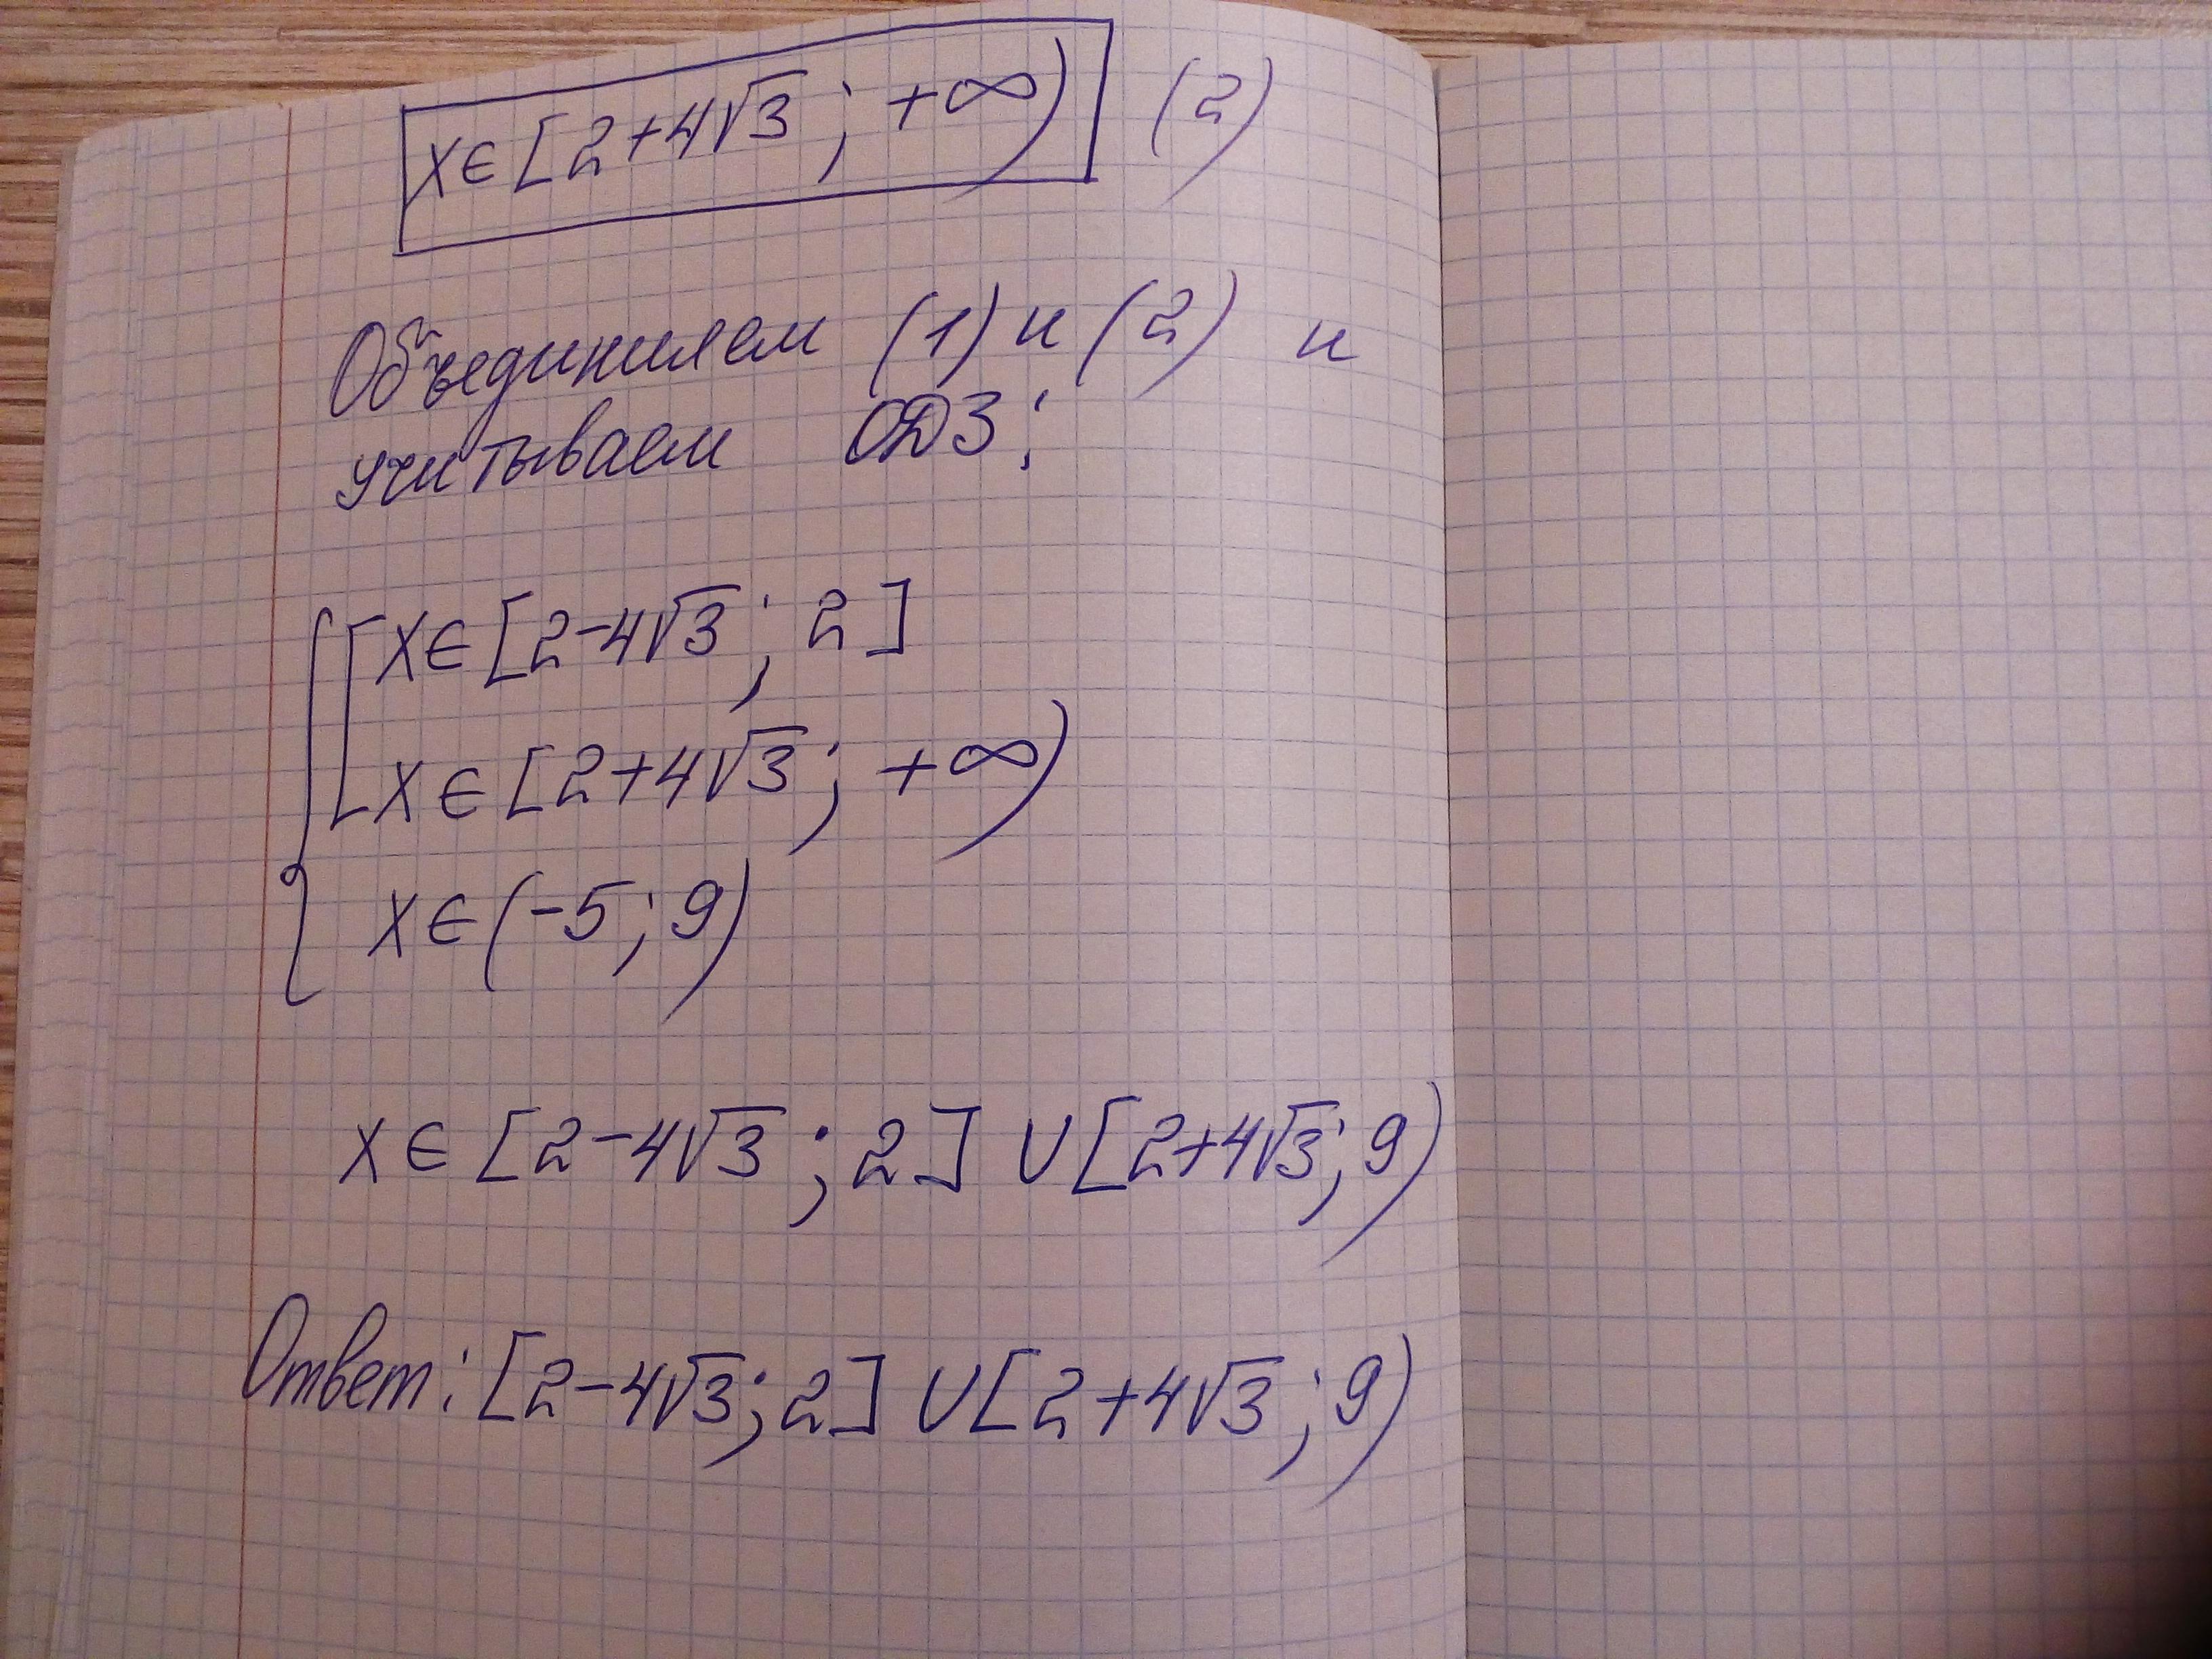 x∈[2+4√3; +∞) (2)
Объединяем (1) и (2) и
учитываем ОДЗ:
x∈[2-4√3; 2]
x∈[2+4√3; +∞)
x∈(-5; 9)
x∈[2-4√3; 2] ∪ [2+4√3; 9)
Ответ: [2-4√3; 2] ∪ [2+4√3; 9)